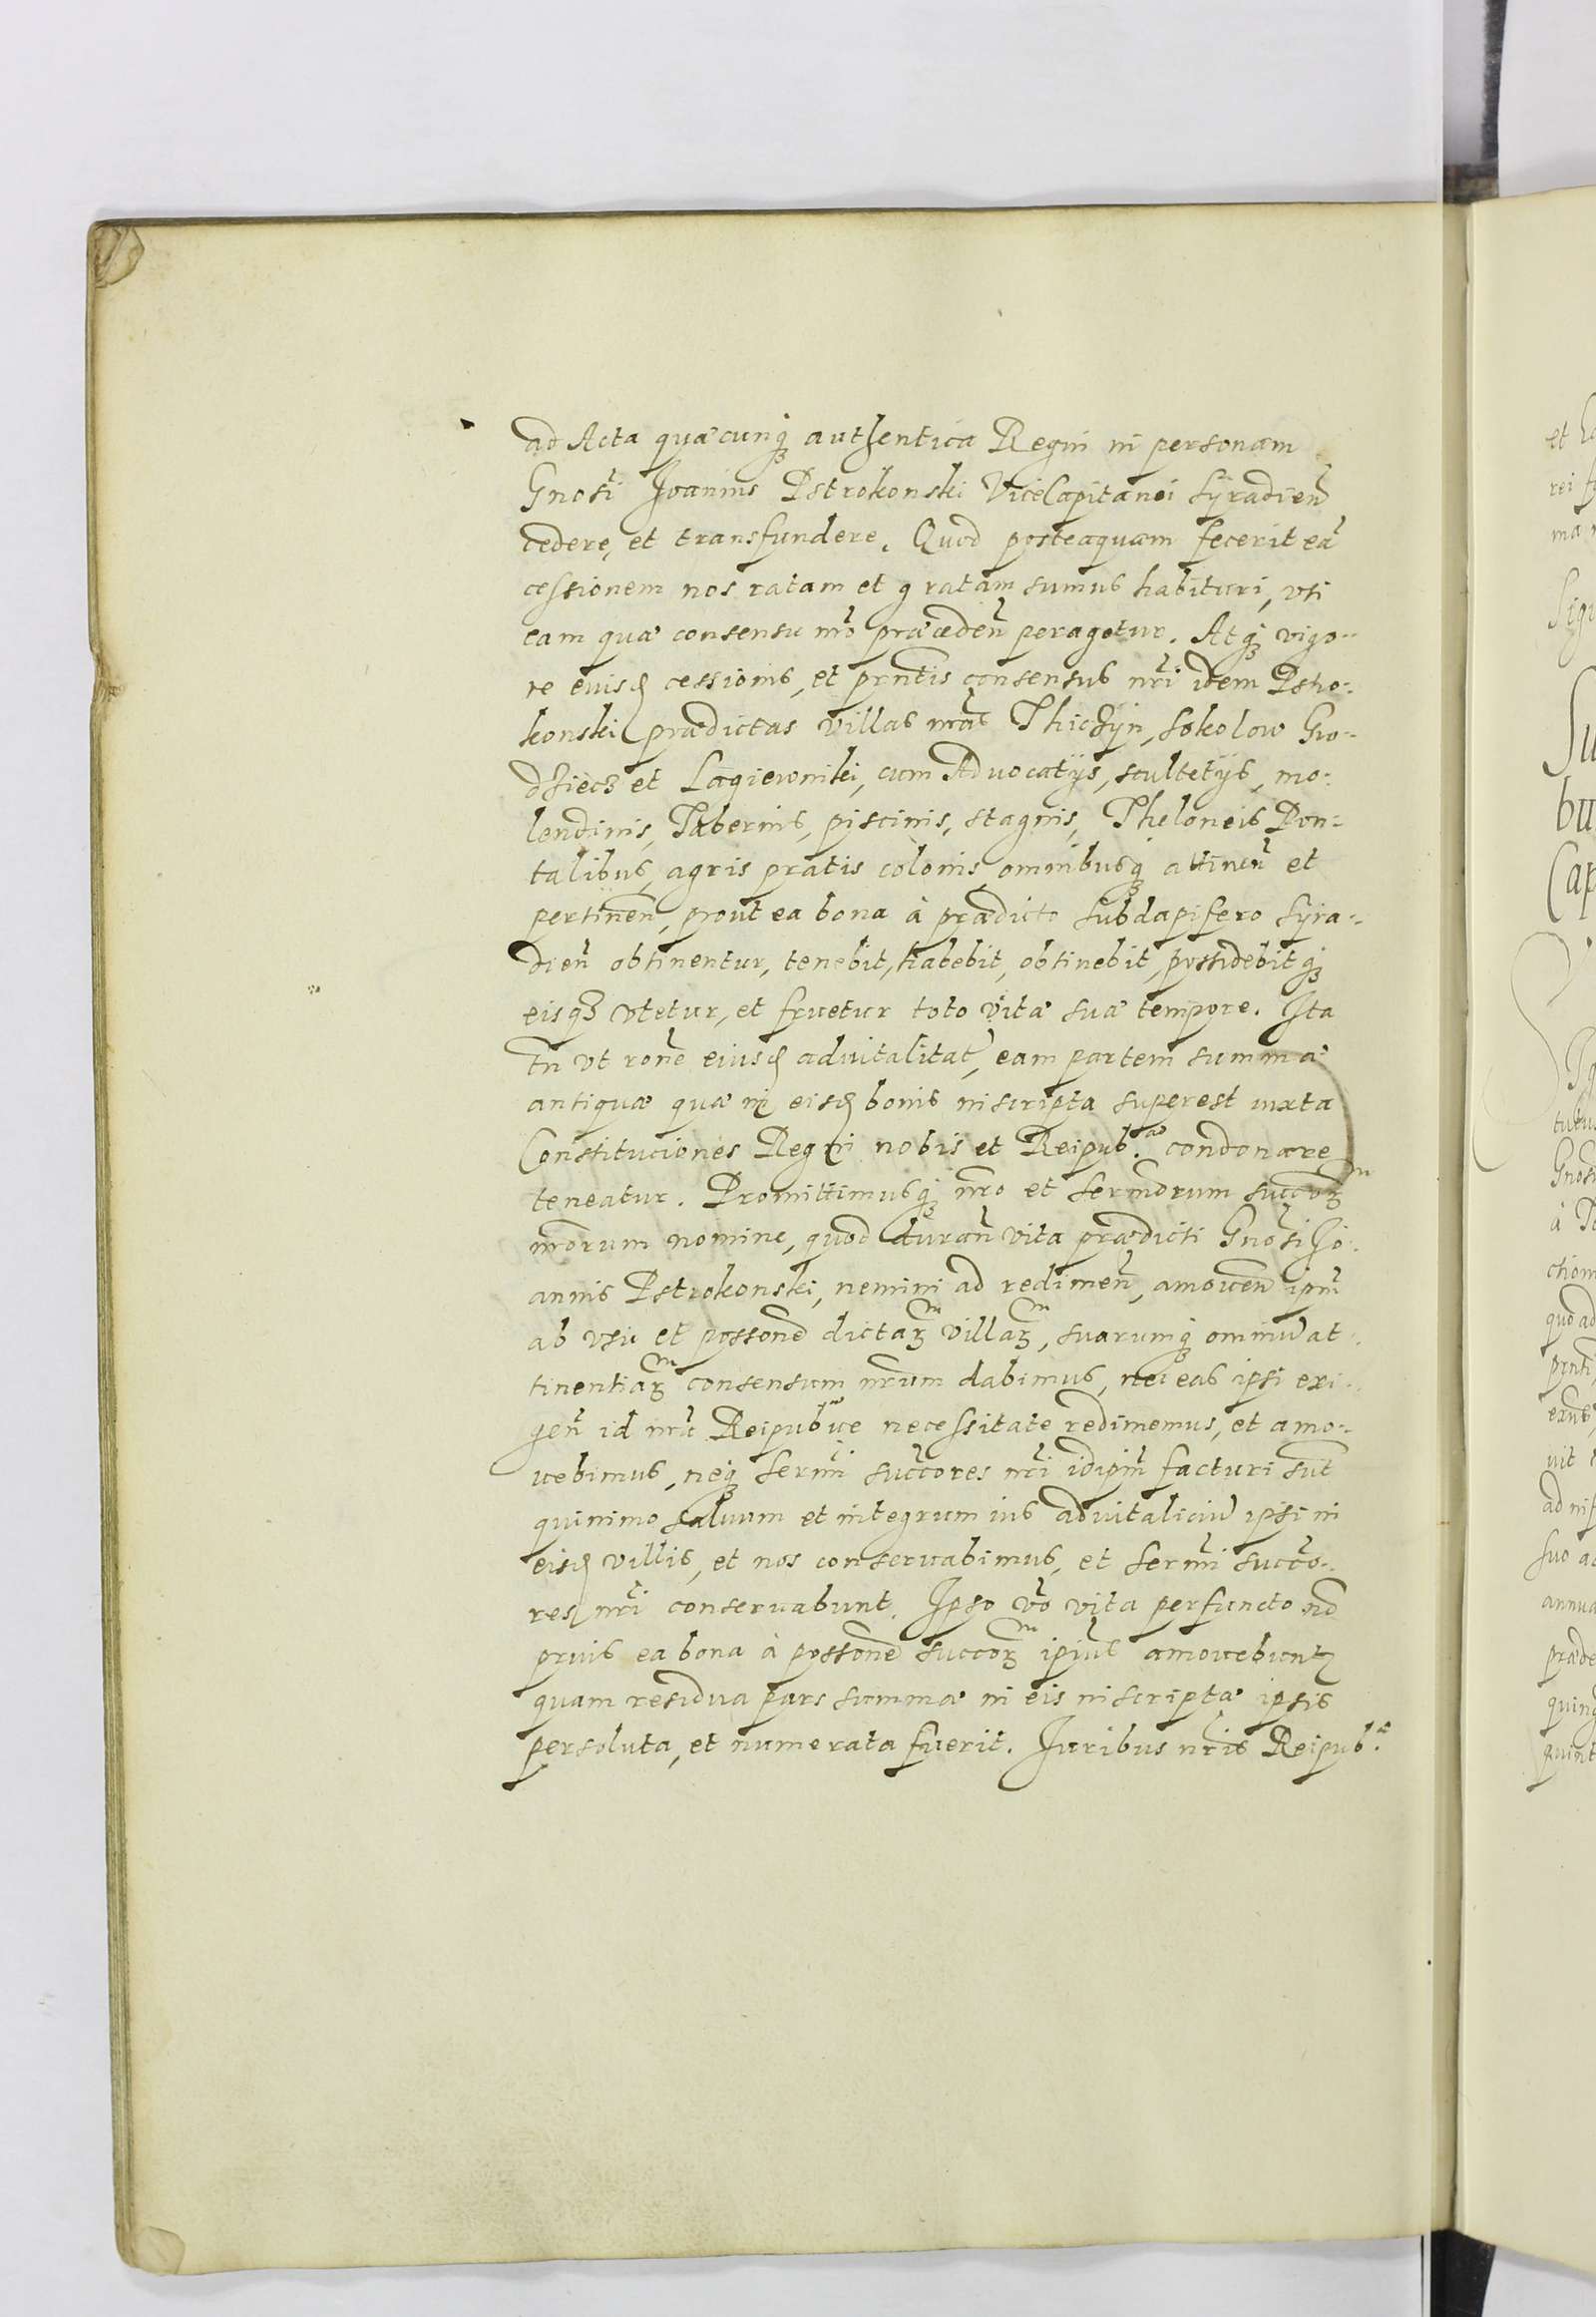 ad Acta quæcunq₃ authentica Regni in personam
Gnosi Joannis Pstrokonski ViceCapitanei Syradien
cedere, et transfundere. Quod posteaquam fecerit eã
cessionem nos ratam et gratam sumus habituri, vti
eam quæ consensu nrõ præceden peragetur. Atq₃ vigo-
re eiusd cessionis, et prntis consensus nri idem Pstro-
konski prædictas villas nrãs Thiczyn, Sokolow Gro-
dziecz et Lagiewniki, cum Advocatÿs, scultetÿs, mo-
lendinis, Tabernis, piscinis, stagnis, Theloneis Pon-
talibus, agris pratis colonis omnibusq₃ attinen et
pertinen, prout ea bona à prædicto Subdapifero Syra-
dien obtinentur, tenebit, habebit, obtinebit, possidebitq₃
eisq₃ vtetur, et fruetur toto vitæ suæ tempore. Ita
tn vt rone eiusd advitalitat, eam partem summæ
antiquæ quæ in eisd bonis inscripta superest iuxta
Constituciones Regni nobis et Reipub.ᵃᵉ condonare
teneatur. Promittimusq₃ nro et Sermorum succorᵐ
nrorum nomine, quod duran vita prædicti Gnosi Jo-
annis Pstrokonski, nemini ad redimen, amouen ipm
ab vsu et possone dictarᵐ villarᵐ, suarumq₃ omniu at-
tinentiarᵐ consensum nrum dabimus, nec eas ipsi exi-
gen id nrã Reipubᶜᵉ necessitate redimemus, et amo-
uebimus, neq₃ Sermi succores nri idipm facturi sunt
quinimo saluum et integrum ius aduitaliciu ipsi in
eisd villis, et nos conseruabimus, et Sermi succo-
res nri conseruabunt. Ipso vo vita perfuncto no
prius ea bona à possone succorᵐ ipius amouebunt
quam residua pars summæ in eis inscriptæ ipsis
persoluta, et numerata fuerit. Juribus nris Reipub.ᶜᵉ